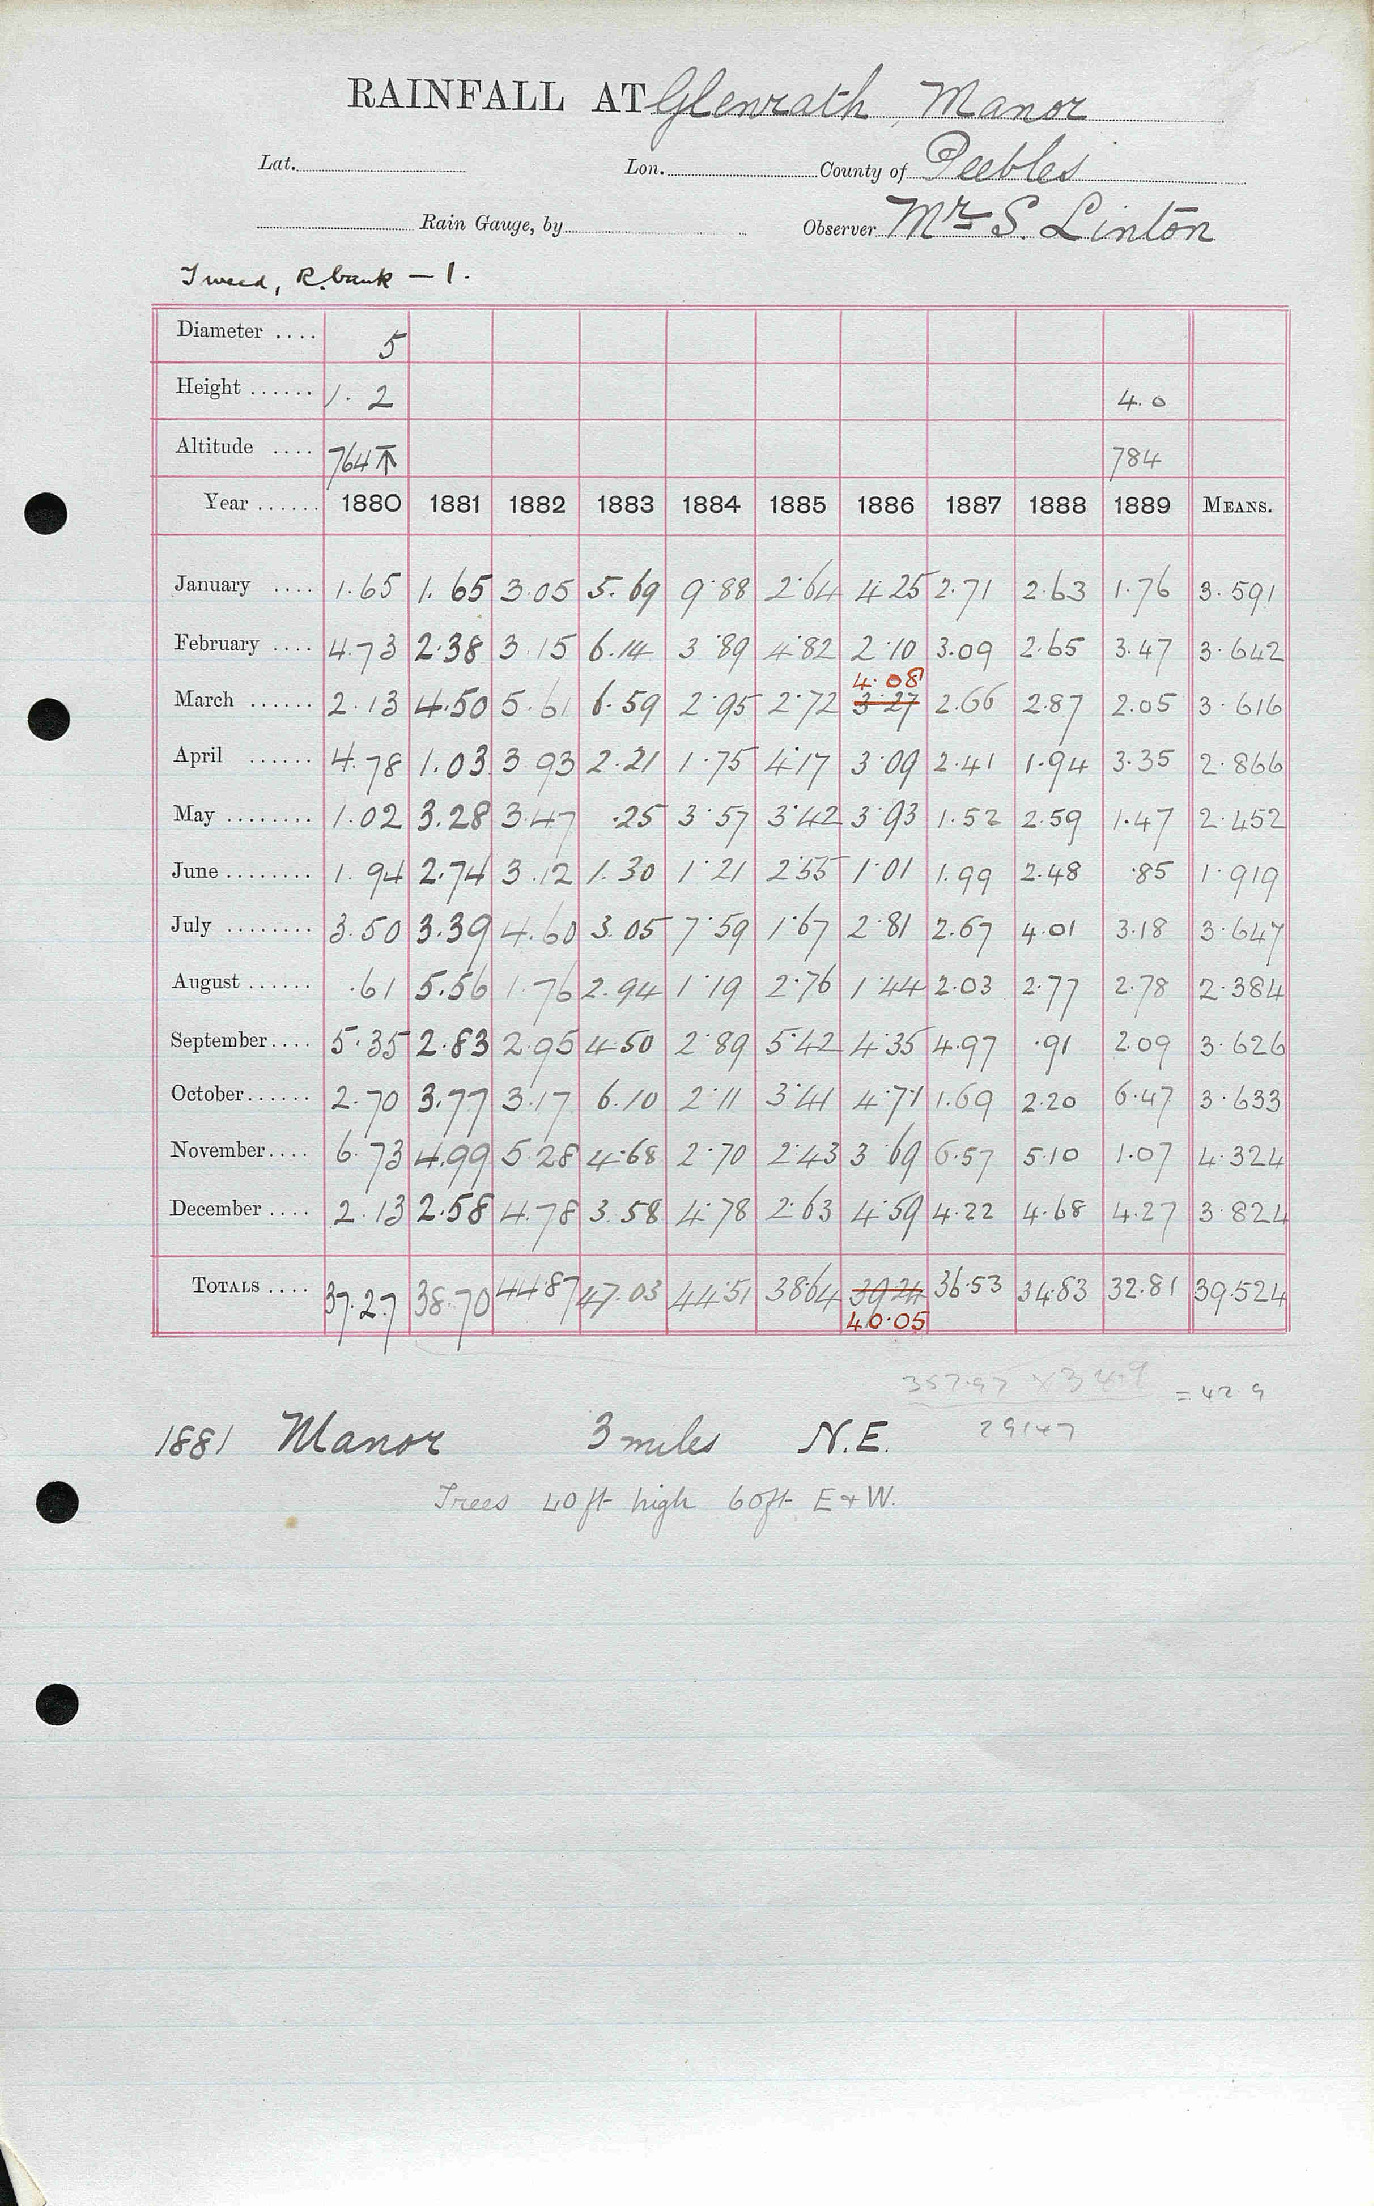 RAINFALL AT Glenrath, Manor
Lat. Lon. County of Peebles
Rain Gauge, by Observer Mr S. Linton
Tweed, R. bank – 1.
Diameter .... 5
Height ...... 1. 2 4. 0
Altitude .... 764 ↑ 784
Year ...... 1880 1881 1882 1883 1884 1885 1886 1887 1888 1889 MEANS.
January .... 1.65 1.65 3.05 5.69 9.88 2.64 4.25 2.71 2.63 1.76 3.591
February .... 4.73 2.38 3.15 6.14 3.89 4.82 2.10 3.09 2.65 3.47 3.642
4.08
March ...... 2.13 4.50 5.61 6.59 2.95 2.72 3.27 2.66 2.87 2.05 3.616
April ...... 4.78 1.03 3.93 2.21 1.75 4.17 3.09 2.41 1.94 3.35 2.866
May ........ 1.02 3.28 3.47 .25 3.57 3.42 3.93 1.52 2.59 1.47 2.452
June ........ 1.94 2.74 3.12 1.30 1.21 2.55 1.01 1.99 2.48 .85 1.919
July ........ 3.50 3.39 4.60 3.05 7.59 1.67 2.81 2.67 4.01 3.18 3.647
August ...... .61 5.56 1.76 2.94 1.19 2.76 1.44 2.03 2.77 2.78 2.384
September.... 5.35 2.83 2.95 4.50 2.89 5.42 4.35 4.97 .91 2.09 3.626
October...... 2.70 3.77 3.17 6.10 2.11 3.41 4.71 1.69 2.20 6.47 3.633
November.... 6.73 4.99 5.28 4.68 2.70 2.43 3.69 6.57 5.10 1.07 4.324
December .... 2.13 2.58 4.78 3.58 4.78 2.63 4.59 4.22 4.68 4.27 3.824
TOTALS .... 37.27 38.70 44.87 47.03 44.51 38.64 39.24 36.53 34.83 32.81 39.524
40.05
357.97 × 34.9 = 42 9
29147
1881 Manor 3 miles N.E.
Trees 40 ft high 60 ft E & W.